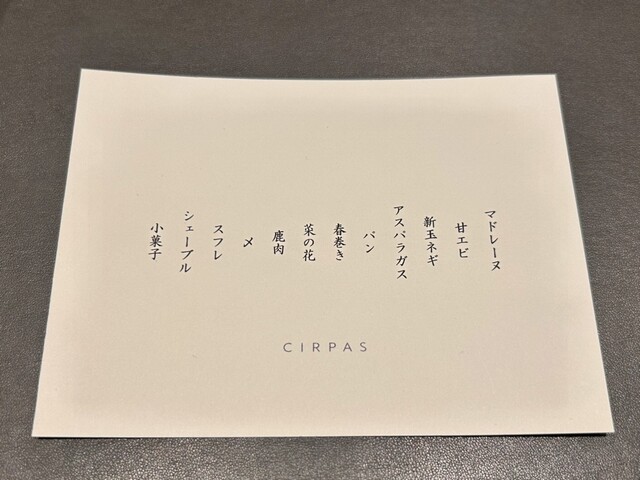 マドレーヌ
甘エビ
新玉ネギ
アスパラガス
パン
春巻き
菜の花
鹿肉
〆
スフレ
シェーブル
小菓子
CIRPAS